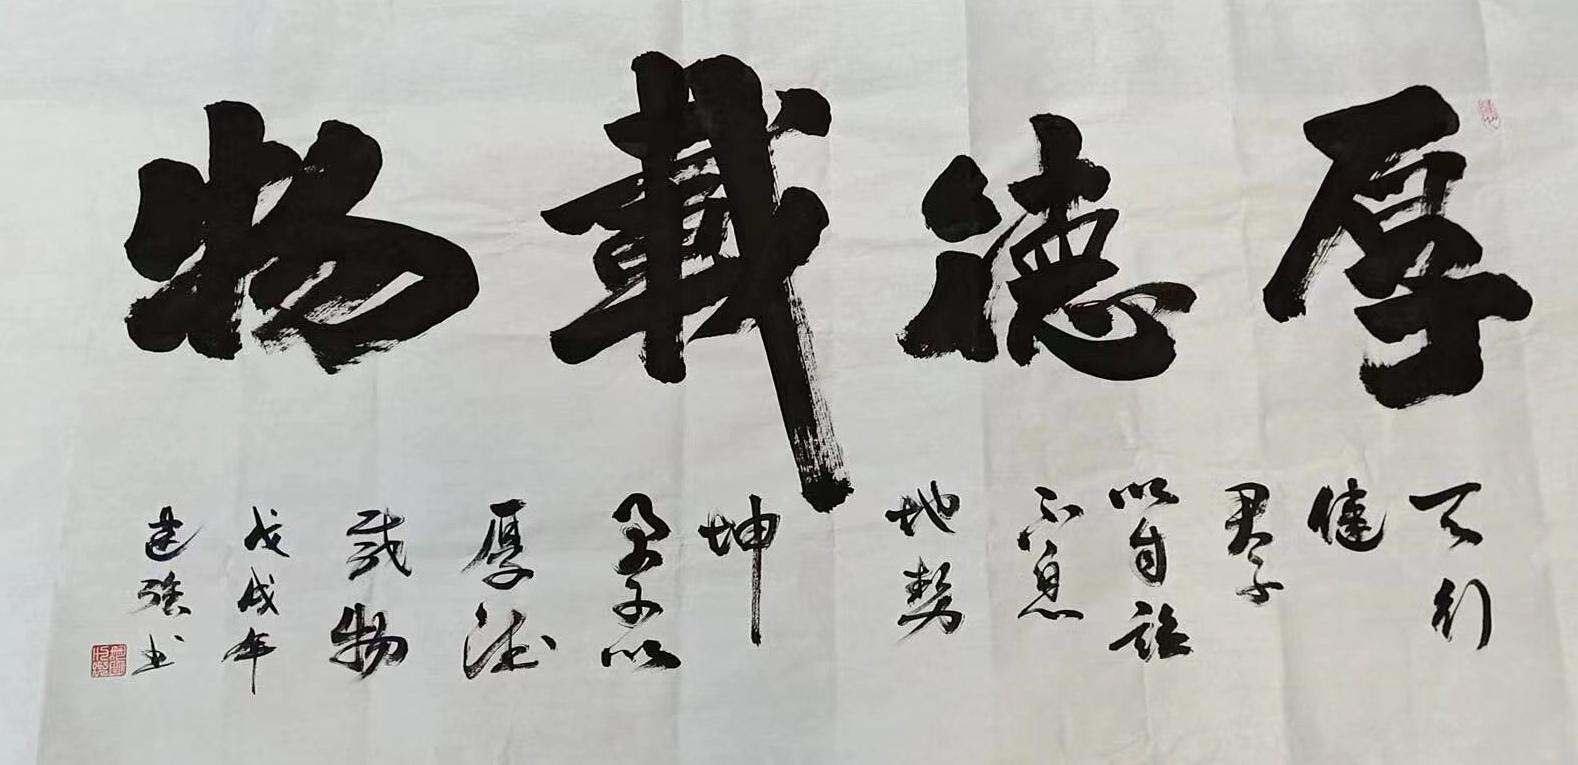 厚德載物
天行
健
君子
以自强
不息
地势
坤
君子以
厚德
载物
戊戌年
建强书